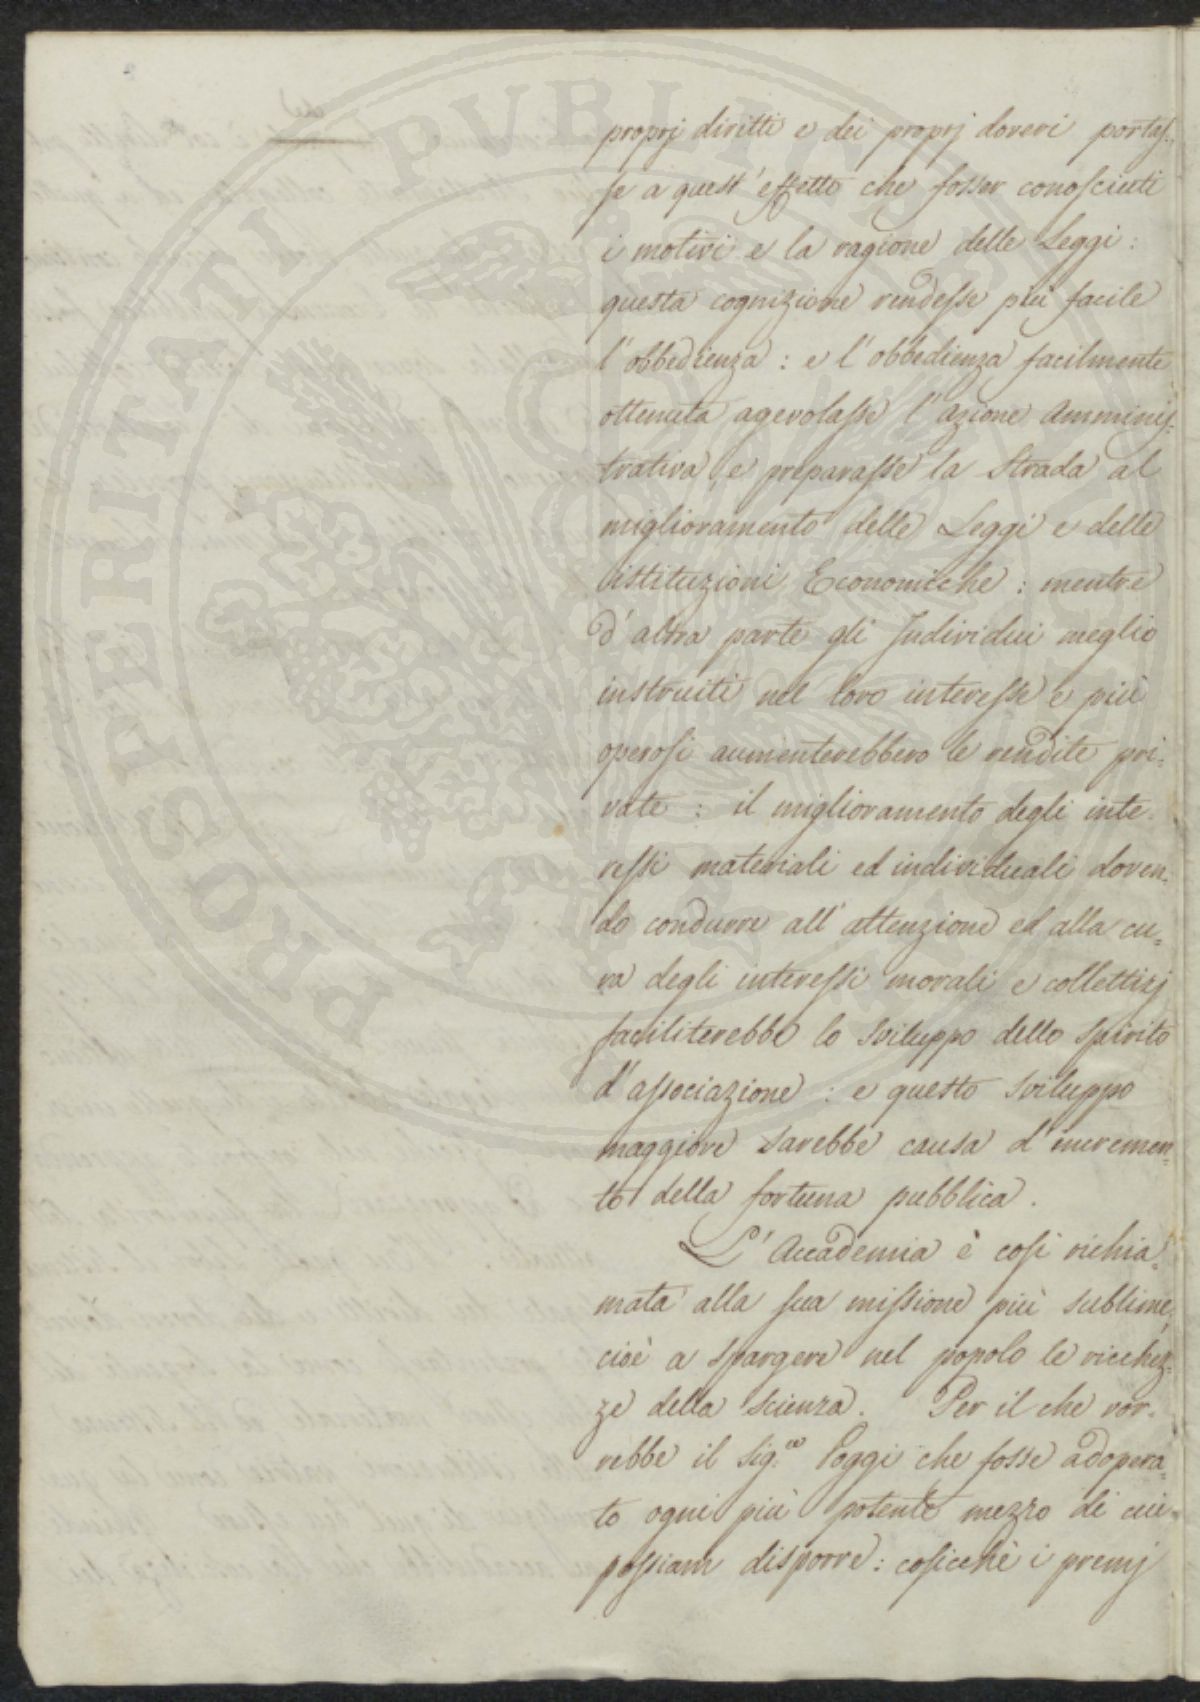 proprj diritti e dei proprj doveri portas-
se a quest'effetto che fosser conosciuti
i motivi e la ragione delle Leggi:
questa cognizione rendesse più facile
l'obbedienza: e l'obbedienza facilmente
ottenuta agevolasse l'azione Amminis-
trativa, e preparasse la Strada al
miglioramento delle Leggi e delle
istituzioni Economiche: mentre
d'altra parte gli Individui meglio
instruiti nel loro interesse e più
operosi aumenterebbero le rendite pri-
vate: il miglioramento degli inte-
ressi materiali ed individuali doven-
do condurre all'attenzione ed alla cu-
ra degli interessi morali e collettivj
faciliterebbe lo sviluppo dello spirito
d'associazione: e questo sviluppo
maggiore sarebbe causa d'incremen-
to della fortuna pubblica.
L'Accademia è così richia-
mata alla sua missione più sublime,
cioè a spargere nel popolo le ricchez-
ze della scienza. Per il che vor-
rebbe il Sig.re Poggi che fosse adopera-
to ogni più potente mezzo di cui
possiam disporre: cosicchè i premj
PROSPERITATI PVBLICAE